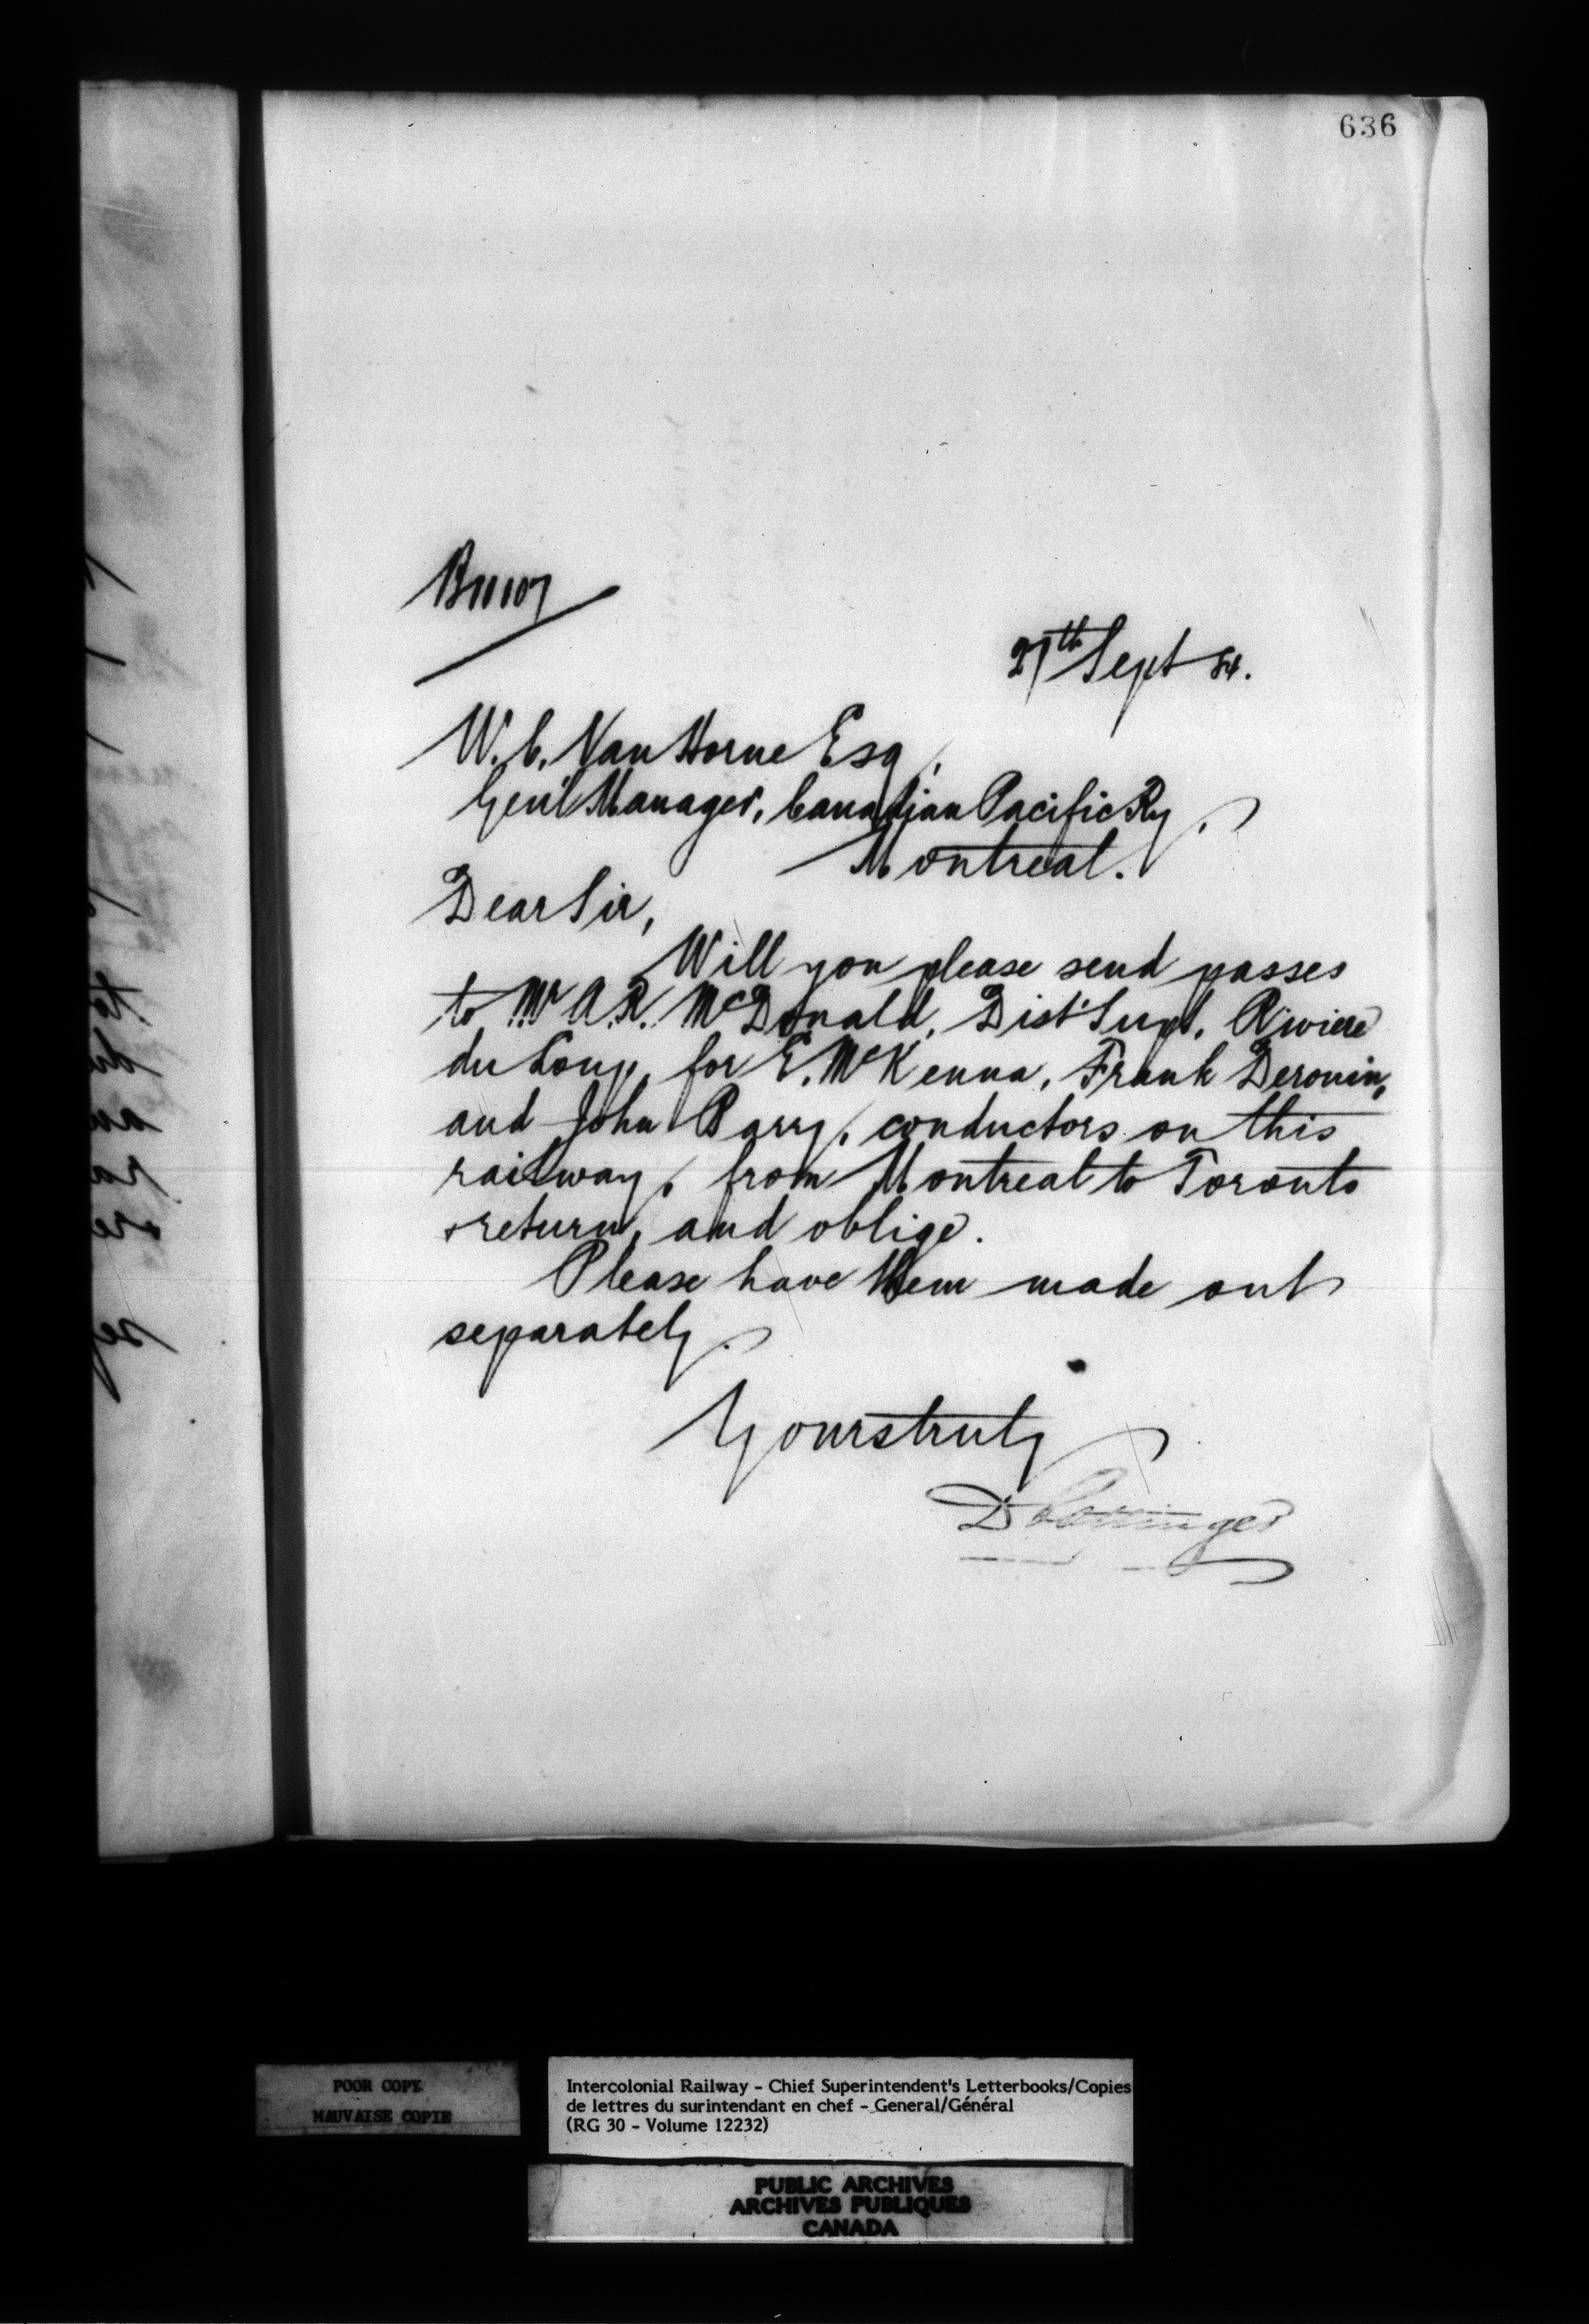 636
B11107
27th Sept 84.
W. C. Van Horne Esq,
Gen'l Manager, Canadian Pacific Ry,
Montreal.
Dear Sir,
Will you please send passes
to Mr A.R. McDonald, Dist Supt. Riviere
du Loup, for E. McKenna, Frank Derouin,
and John Parry, conductors on this
railway, from Montreal to Toronto
& return, and oblige.
Please have them made out
separately.
Yours truly
D Pottinger
POOR COPY
MAUVAISE COPIE
Intercolonial Railway - Chief Superintendent's Letterbooks/Copies
de lettres du surintendant en chef - General/Général
(RG 30 - Volume 12232)
PUBLIC ARCHIVES
ARCHIVES PUBLIQUES
CANADA